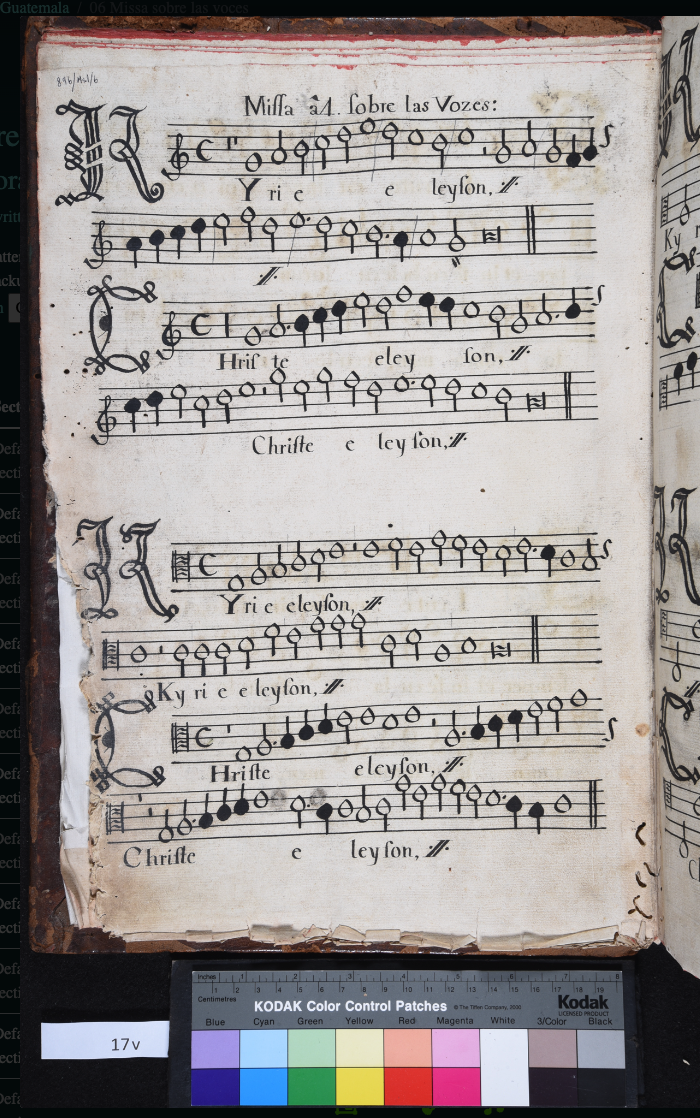 Guatemala / 06 Missa sobre las voces
Missa à 4. sobre las Vozes:
KYrie e leyson, //.
//.
CHriste eleyson, //.
Christe eleyson, //.
KYrie eleyson, //.
Kyrie eleyson, //.
CHriste eleyson, //.
Christe e leyson, //.
Inches 1 2 3 4 5 6 7 8
Centimetres 1 2 3 4 5 6 7 8 9 10 11 12 13 14 15 16 17 18 19
KODAK Color Control Patches © The Tiffen Company, 2000 Kodak
LICENSED PRODUCT
Blue Cyan Green Yellow Red Magenta White 3/Color Black
17v